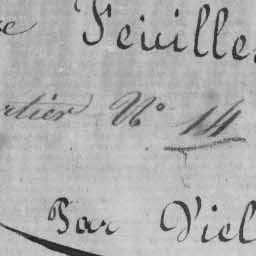 Feuille
rtier N° 14
Par Viel